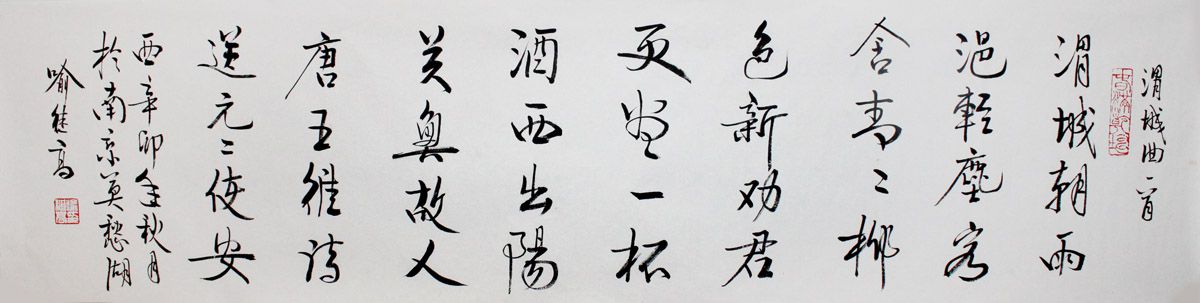 渭城曲一首
渭城朝雨
浥輕塵客
舍青〻柳
色新劝君
更盡一杯
酒西出陽
关無故人
唐王維诗
送元二使安
西辛卯年秋月
於南京莫愁湖
喻继高